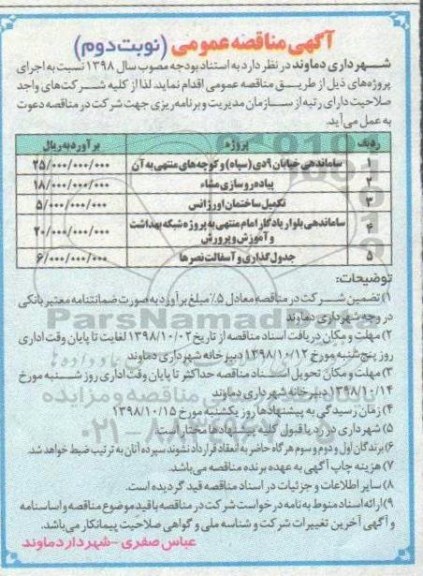 آگهی مناقصه عمومی (نوبت دوم)
شهرداری دماوند در نظر دارد به استناد بودجه مصوب سال ۱۳۹۸ نسبت به اجرای
پروژه‌های ذیل از طریق مناقصه عمومی اقدام نماید، لذا از کلیه شرکت‌های واجد
صلاحیت دارای رتبه از سازمان مدیریت و برنامه‌ریزی جهت شرکت در مناقصه دعوت
به عمل می‌آید.
ردیف پروژه برآورد به ریال
۱ ساماندهی خیابان ۹دی (سپاه) و کوچه‌های منتهی به آن ۲۵/۰۰۰/۰۰۰/۰۰۰
۲ پیاده‌روسازی مشاء ۱۸/۰۰۰/۰۰۰/۰۰۰
۳ تکمیل ساختمان اورژانس ۵/۰۰۰/۰۰۰/۰۰۰
۴ ساماندهی بلوار یادگار امام منتهی به پروژه شبکه بهداشت
و آموزش و پرورش ۲۰/۰۰۰/۰۰۰/۰۰۰
۵ جدول‌گذاری و آسفالت نصرها ۶/۰۰۰/۰۰۰/۰۰۰
توضیحات:
۱) تضمین شرکت در مناقصه معادل ۵٪ مبلغ برآورد به صورت ضمانتنامه معتبر بانکی
در وجه شهرداری دماوند
۲) مهلت و مکان دریافت اسناد مناقصه از تاریخ ۱۳۹۸/۱۰/۰۲ لغایت تا پایان وقت اداری
روز پنج‌شنبه مورخ ۱۳۹۸/۱۰/۱۲ دبیرخانه شهرداری دماوند
۳) مهلت و مکان تحویل اسناد مناقصه حداکثر تا پایان وقت اداری روز شنبه مورخ
۱۳۹۸/۱۰/۱۴ دبیرخانه شهرداری دماوند
۴) زمان رسیدگی به پیشنهادها روز یکشنبه مورخ ۱۳۹۸/۱۰/۱۵
۵) شهرداری در رد یا قبول کلیه پیشنهادها مختار است.
۶) برندگان اول و دوم و سوم هرگاه حاضر به انعقاد قرارداد نشوند سپرده آنان به ترتیب ضبط خواهد شد.
۷) هزینه چاپ آگهی به عهده برنده مناقصه می‌باشد.
۸) سایر اطلاعات و جزئیات در اسناد مناقصه قید گردیده است.
۹) ارائه اسناد منوط به نامه درخواست شرکت در مناقصه با قید موضوع مناقصه و اساسنامه
و آگهی آخرین تغییرات شرکت و شناسه ملی و گواهی صلاحیت پیمانکار می‌باشد.
عباس صفری - شهردار دماوند
ParsNamadData